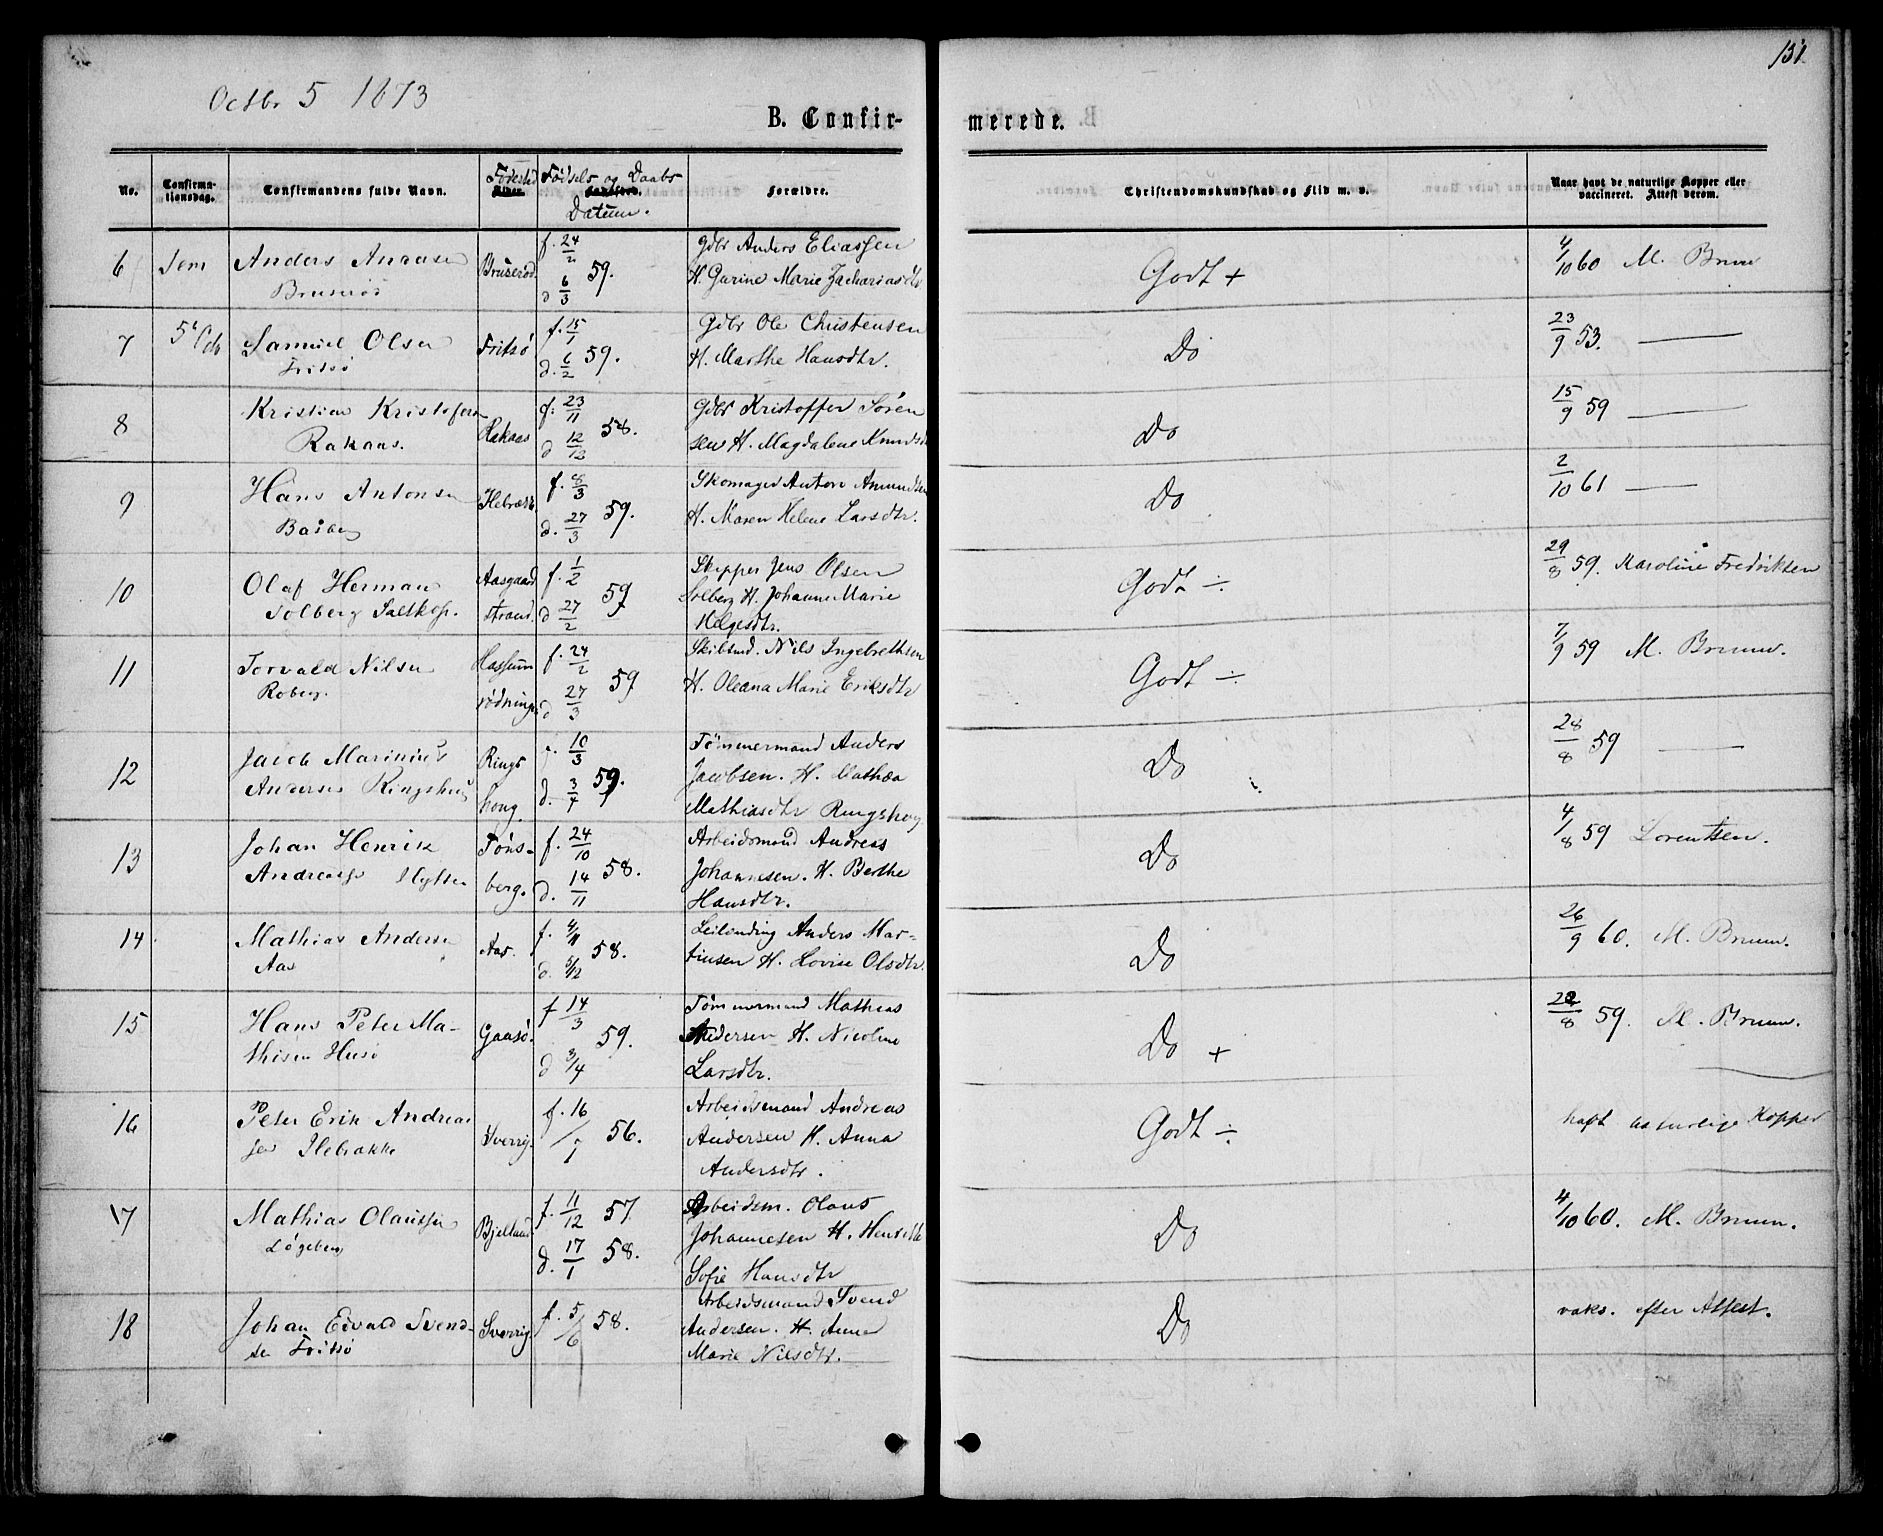 131
Octbr 5 1873
B. Confir-
merede.
No.
Confirma-
tionsdag.
Confirmandens fulde Navn.
Fødested
Alder.
Fødsels og Daabs
Datum.
Forældre.
Christendomskundskab og Flid m. v.
Naar havt de naturlige Kopper eller
vaccineret. Attest derom.
6 Sem Anders Andrsen Bruserød f. 24/2 59. Gdbr Anders Eliassen Godt + 4/10 60 M. Bruun
Bruserød d 6/3 H. Gurine Marie Zachariasdtr
7 5t Octb Samuel Olsen Fritsø f. 15/1 59. Gdbr Ole Christensen Do 23/9 53. —
Fritsø d. 6/2 H. Marthe Hansdtr.
8 Kristian Kristofersen Rakaas f. 23/11 58. Gdbr Kristoffer Sören Do 15/9 59 —
Rakaas. d 12/12 sen H. Magdalene Knudsd
9 Hans Antonsen Ilebrækk f. 8/3 59. Skomager Anton Amundsen Do 2/10 61 —
Basberg d. 27/3 H. Maren Helene Larsdtr.
10 Olaf Herman Aasgaard f. 1/2 59 Skipper Jens Olsen Godt ÷ 29/8 59. Karoline Fredriksen
Solberg Saltkop. strand. d 27/2 Solberg H. Johanne Marie
Helgesdtr.
11 Torvald Nilsen Hassum f. 24/2 59 Skibsmd. Nils Ingebrethsen Godt ÷ 7/9 59 M. Bruun.
Roberg. rødninge d 27/3 H. Oleana Marie Eriksdtr
12 Jacob Marinius Rings f. 10/3 59. Tømmermand Anders Do 28/8 59 —
Andersen Ringshaug houg. d. 3/4 Jacobsen. H. Mathea
Mathiasdtr Ringshoug
13 Johan Henrik Tøns- f. 24/10 58. Arbeidsmand Andreas Do 4/8 59 Lorentsen.
Andreass berg. d. 14/11 Johannesen. H. Berthe
Hansdtr.
14. Mathias Andersen Aas. f. 4/11 58. Leilending Anders Mar- Do 26/9 60. M. Bruun.
Aas d. 5/12 tinsen H. Lovise Olsdtr.
15 Hans Peter Ma- Gaasø. f 14/3 59. Tømmermand Mathias Do + 22/8 59. M. Bruun.
thisen Husø d 3/4 Andersen H. Nicoline
Larsdtr.
16 Peter Erik Andreas Sverrig. f. 16/1 56. Arbeidsmand Andreas Godt ÷ haft naturlige Kopper
sen Ilebrakke Andersen H. Anna
Andersdtr.
17 Mathias Olaussen Bjelland f. 11/12 57. Arbeidsm. Olaus Do 4/10 60. M. Bruun.
Løgeberg d. 17/1 58. Johannesen H. Henrikke
Sofie Hansdtr
18 Johan Edvard Svend- Sverrig f. 5/6 58. Arbeidsmand Svend Do vaks. efter Attest.
sen Fritsø Andersen. H. Anne
Marie Nilsdtr.